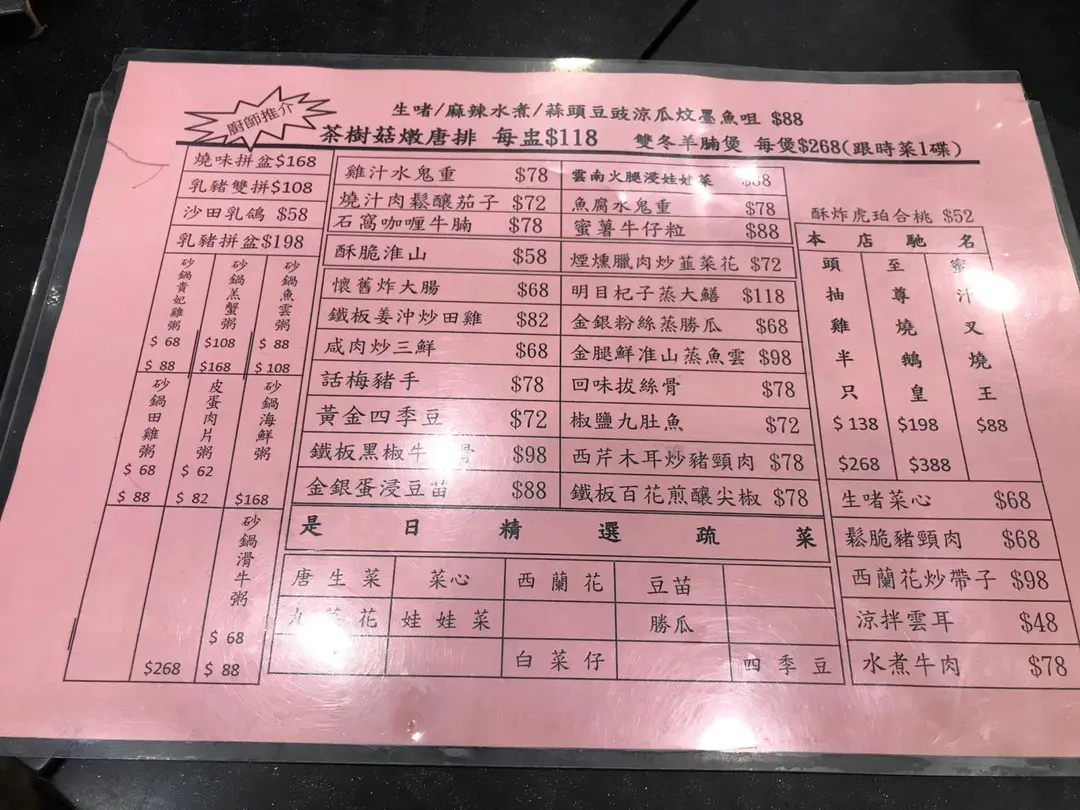 廚師推介
生啫/麻辣水煮/蒜頭豆豉涼瓜炆墨魚咀 $88
茶樹菇燉唐排 每盅$118 雙冬羊腩煲 每煲$268(跟時菜1碟)
燒味拼盆$168
乳豬雙拼$108
沙田乳鴿 $58
乳豬拼盆$198
砂鍋貴妃雞粥
$ 68
$ 88
砂鍋羔蟹粥
$108
$168
砂鍋魚雲粥
$ 88
$ 108
砂鍋田雞粥
$ 68
$ 88
皮蛋肉片粥
$ 62
$ 82
砂鍋海鮮粥
$168
$268
砂鍋滑牛粥
$ 68
$ 88
雞汁水鬼重 $78
燒汁肉鬆釀茄子 $72
石窩咖喱牛腩 $78
酥脆淮山 $58
懷舊炸大腸 $68
鐵板姜沖炒田雞 $82
咸肉炒三鮮 $68
話梅豬手 $78
黃金四季豆 $72
鐵板黑椒牛 骨 $98
金銀蛋浸豆苗 $88
雲南火腿浸娃娃菜
魚腐水鬼重 $78
蜜薯牛仔粒 $88
煙燻臘肉炒韮菜花 $72
明目杞子蒸大鱔 $118
金銀粉絲蒸勝瓜 $68
金腿鮮淮山蒸魚雲 $98
回味拔絲骨 $78
椒鹽九肚魚 $72
西芹木耳炒豬頸肉 $78
鐵板百花煎釀尖椒 $78
是日精選疏菜
唐生菜 菜心 西蘭花 豆苗
花 娃娃菜 勝瓜
白菜仔 四季豆
酥炸虎珀合桃 $52
本店馳名
頭抽雞半只
$ 138
$268
至尊燒鵝皇
$198
$388
蜜汁叉燒王
$88
生啫菜心 $68
鬆脆豬頸肉 $68
西蘭花炒帶子 $98
涼拌雲耳 $48
水煮牛肉 $78